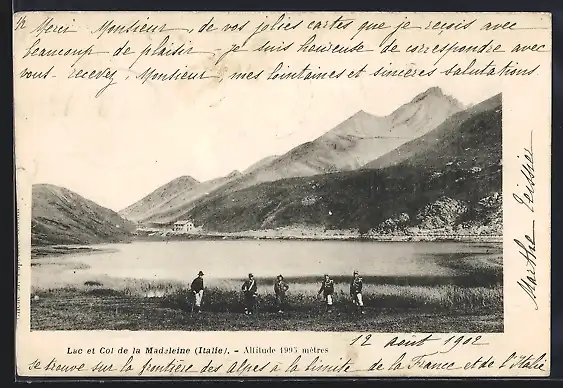 Merci Monsieur, de vos jolies cartes que je reçois avec
beaucoup de plaisir - je suis heureuse de correspondre avec
vous - recevez, Monsieur, mes lointaines et sincères salutations.
Marthe Teissier
Lac et Col de la Madeleine (Italie). - Altitude 1995 mètres
12 août 1902
se trouve sur la frontière des alpes à la limite de la France et de l'Italie